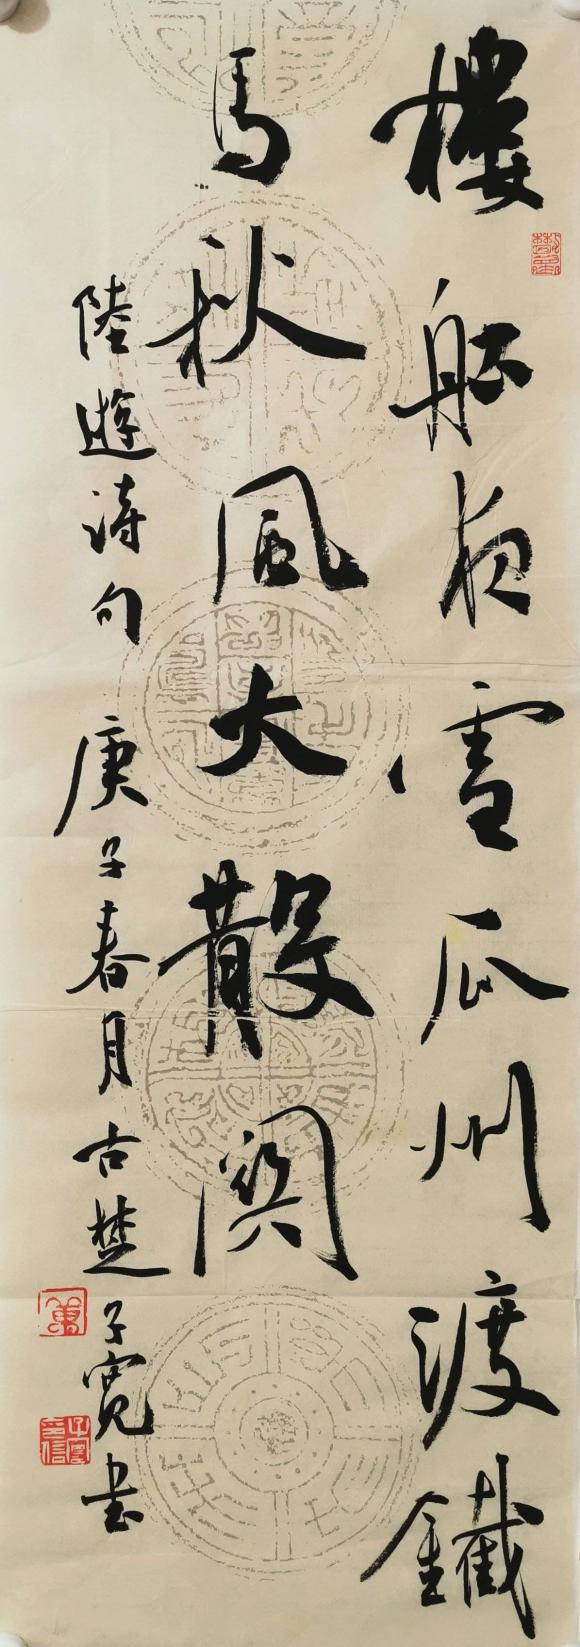 樓船夜雪瓜州渡鐵
馬秋風大散關
陸遊詩句 庚子春月古楚子寬书